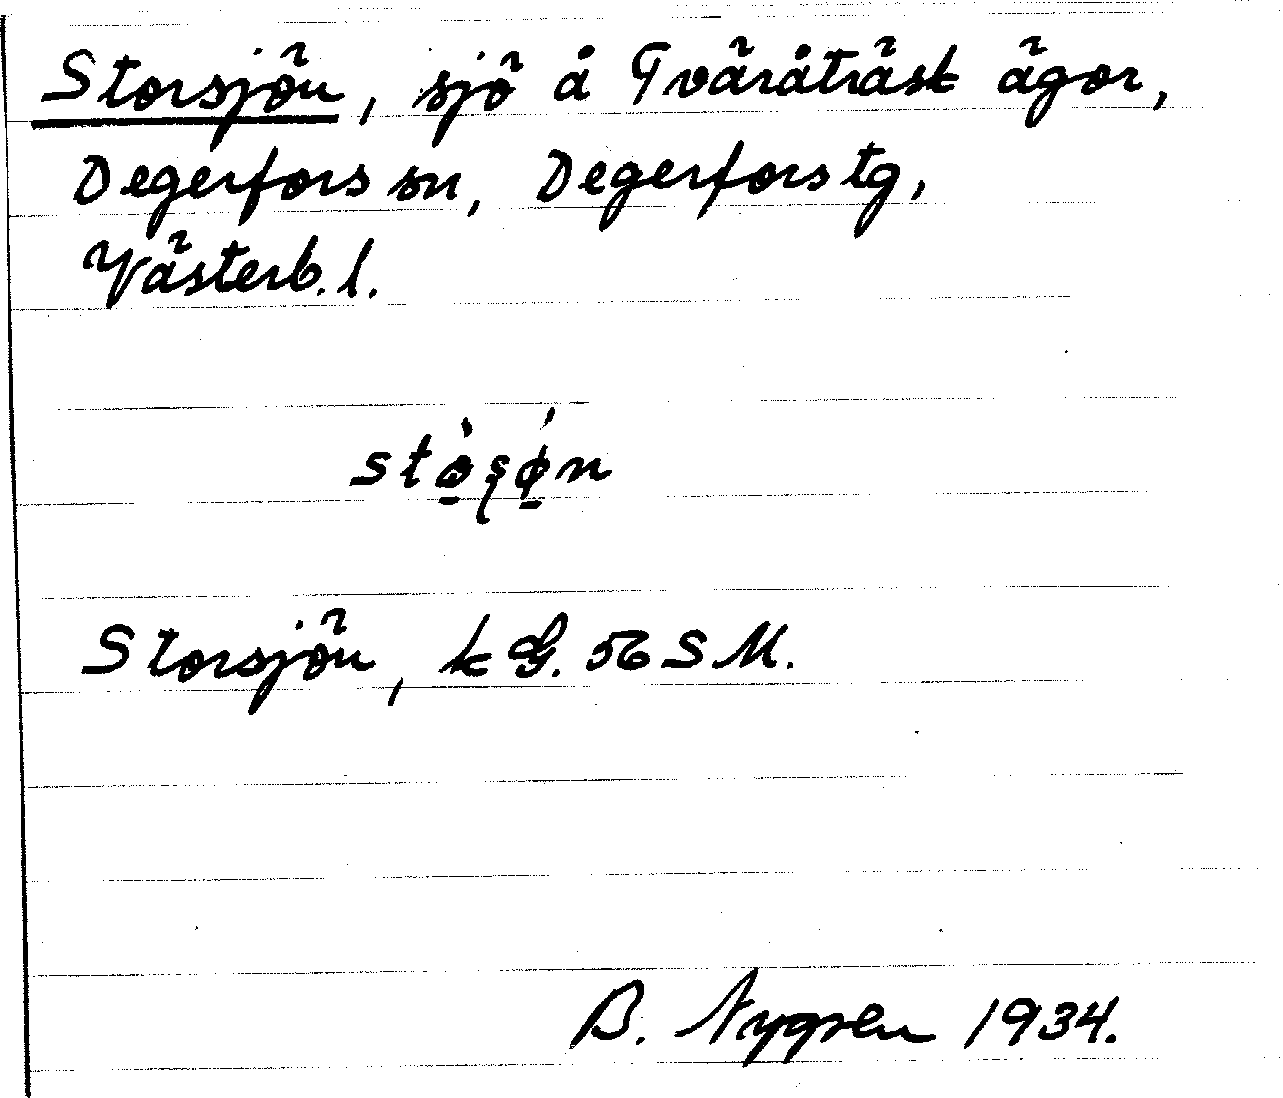 Storsjön, sjö å Tväråträsk ägor,
Degerfors sn, Degerfors tg,
Västerb. l.
stò̠ʂǿ̠n
Storsjön, k G. 56 S M.
B. Nygren 1934.